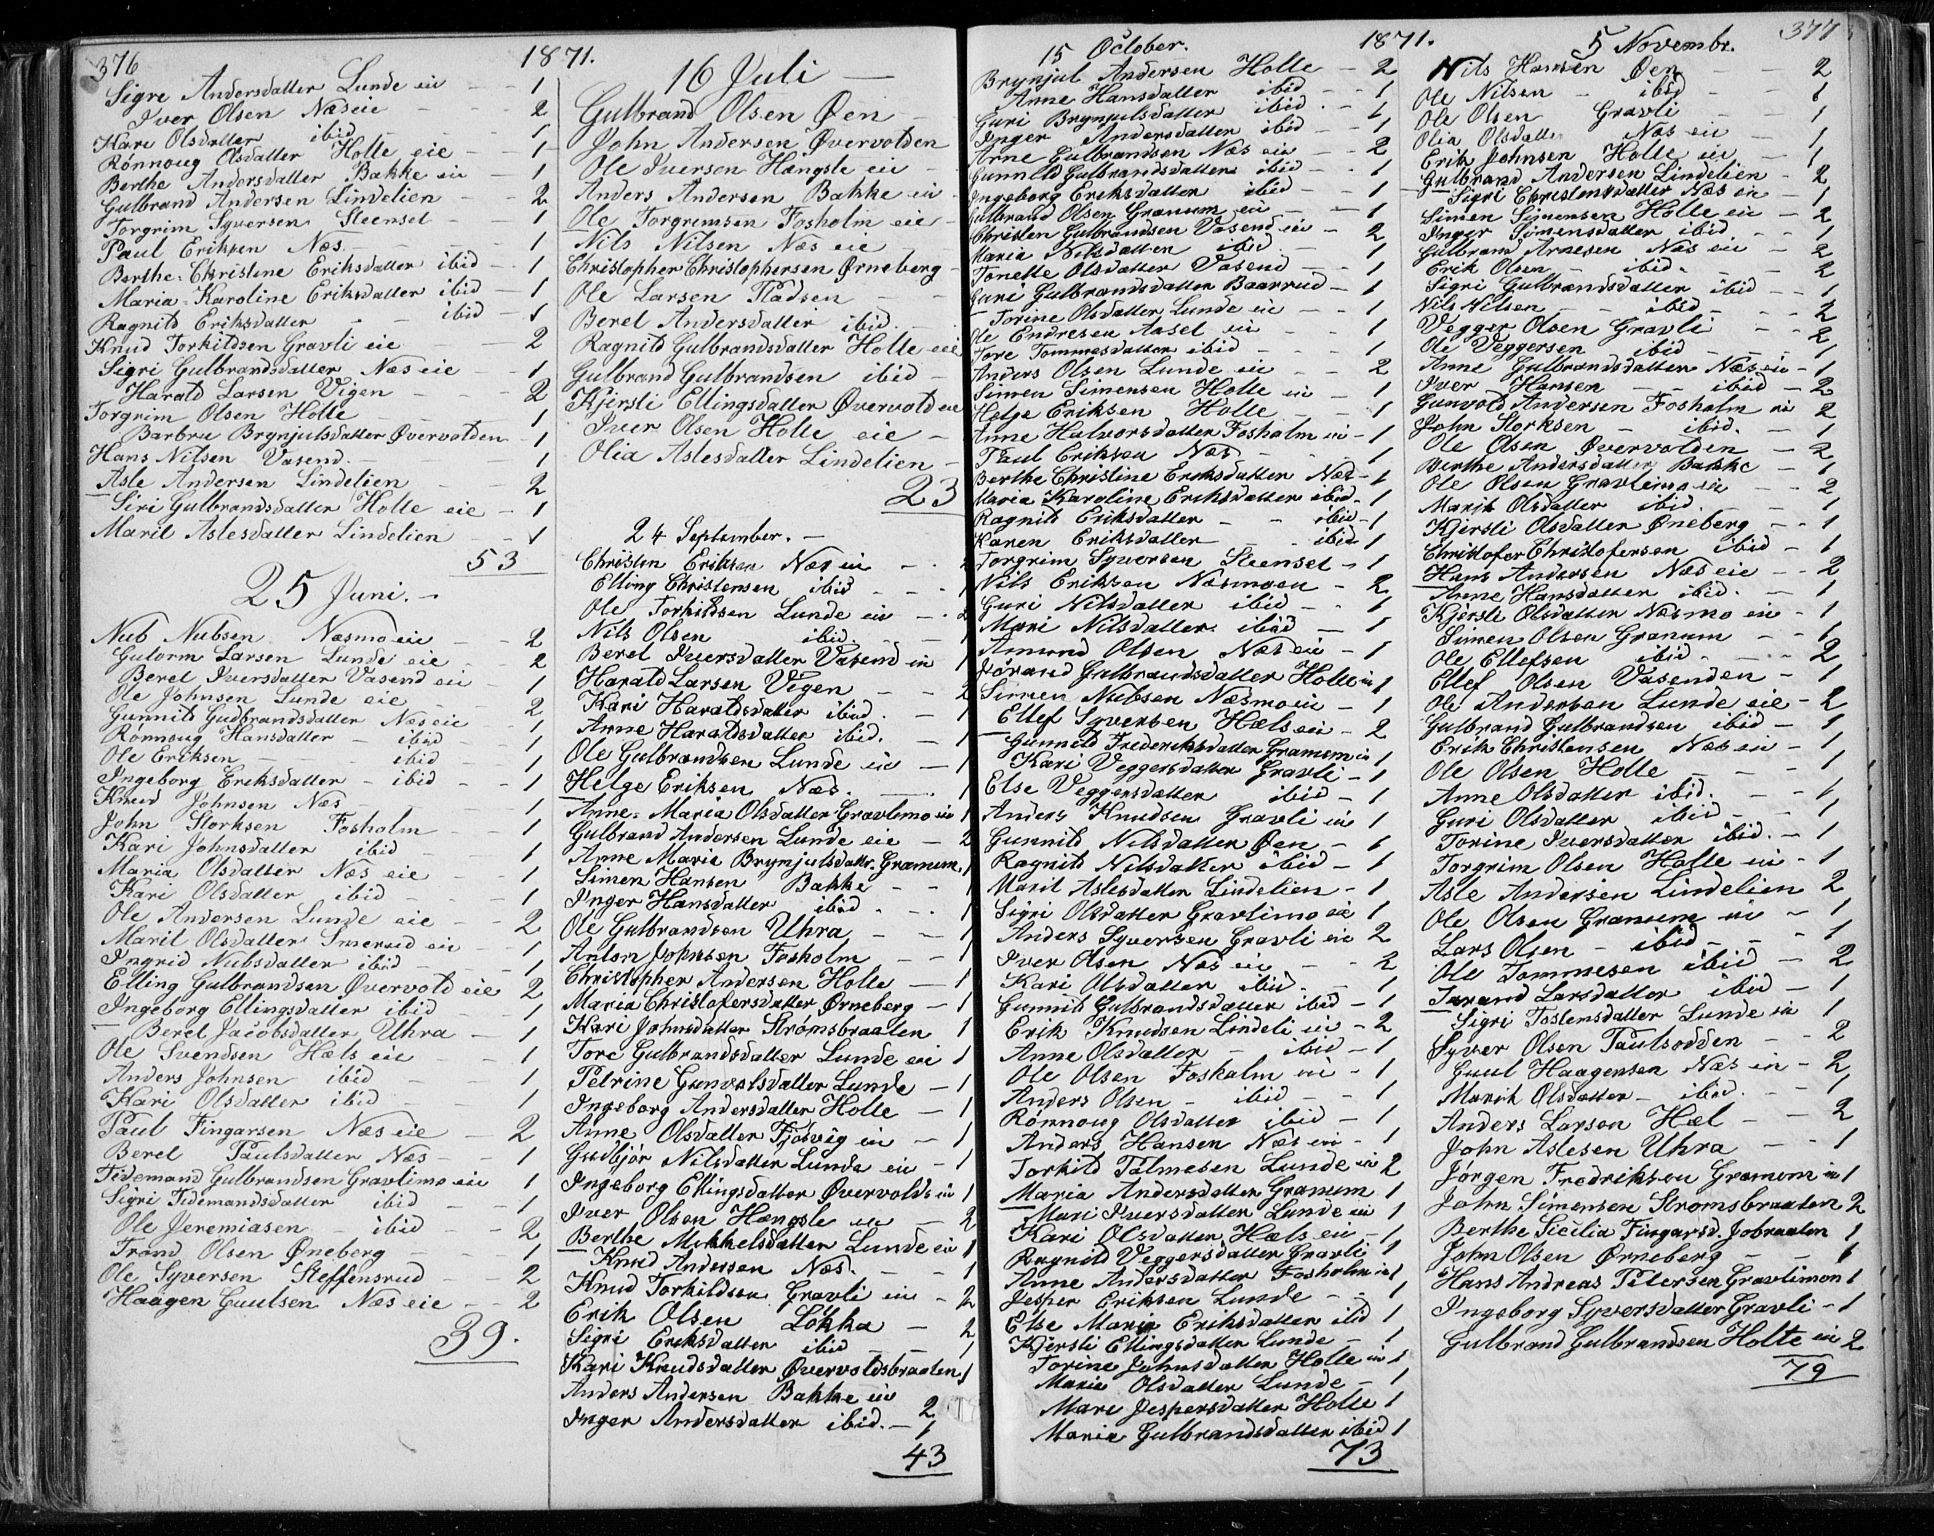 376
1871.
Sigre Andersdatter Lunde eie - - 1
Iver Olsen Næs eie - - 2
Kari Olsdatter ibid - - 1
Rønnoug Olsdatter Holte eie - 1
Berthe Andersdatter Bakke eie - 1
Gulbrand Andersen Lindelien - 2
Torgrim Syversen Steenset - - 1
Paul Eriksen Næs - - 1
Berthe-Christine Eriksdatter ibid - 1
Maria-Karoline Eriksdatter ibid - 1
Ragnild Eriksdatter - - ibid - 1
Knud Torkildsen Gravli eie - - 2
Sigri Gulbrandsdatter Næs eie - 1
Harald Larsen Vigen - - 2
Torgrim Olsen Holte - - 1
Barbru Brynjulsdatter Øvervolden - 1
Hans Nilsen Vasend - - 1
Asle Andersen Lindelien - - 2
Siri Gulbrandsdatter Holte eie - 1
Marit Aslesdatter Lindelien - - 1
53
25 Juni. -
Nub Nubsen Næsmo eie - - 2
Gutorm Larsen Lunde eie - 2
Beret Iversdatter Vasend eie - 1
Ole Johnsen Lunde eie - 2
Gunnild Gudbrandsdatter Næs eie 1
Rønnoug Hansdatter - ibid - 1
Ole Eriksen - ibid - 1
Ingeborg Eriksdatter - ibid - - 1
Knud Johnsen Næs - - 1
John Storksen Fosholm - - 1
Kari Johnsdatter ibid - 1
Maria Olsdatter Næs eie - - 1
Kari Olsdatter ibid - - 1
Ole Andersen Lunde eie - - 2
Marit Olsdatter Smerud eie - - 1
Ingrid Nubsdatter ibid - - 1
Elling Gulbrandsen Øvervold eie 2
Ingeborg Ellingsdatter ibid - 1
Beret Jacobsdatter Uhra - 1
Ole Svendsen Hæls eie - - 1
Anders Johnsen ibid - - 1
Kari Olsdatter ibid - - 1
Paul Fingarsen Næs eie - 2
Beret Paulsdatter Næs - - 1
Tidemand Gulbrandsen Gravlimo eie 1
Sigri Tidemandsdatter ibid - - 1
Ole Jeremiasen - ibid - - 2
Trond Olsen Øneberg - - 1
Ole Syversen Steffensrud - - 2
Haagen Guulsen Næs eie - - 2
39.
16 Juli -
Gulbrand Olsen Øen -
John Andersen Øvervolden
Ole Iversen Hængsle eie -
Anders Andersen Bakke eie -
Ole Torgrimsen Fosholm eie -
Nils Nilsen Næs eie
Christopher Christophersen Ørneberg -
Ole Larsen Pladsen - -
Beret Andersdatter ibid. -
Ragnild Gulbrandsdatter Holte eie
Gulbrand Gulbrandsen ibid -
Kjersti Ellingsdatter Øvervold eie
Iver Olsen Holte eie -
Olia Aslesdatter Lindelien -
23
24 September. -
Christen Eriksen Næs eie - . 2
Elling Christensen ibid - - 1
Ole Torkildsen Lunde eie - . 2
Nils Olsen ibid. - - 1
Beret Iversdatter Vasend eie 1
Harald Larsen Vigen - - 2
Kari Haraldsdatter ibid. - 1
Anne Haraldsdatter ibid. - 1
Ole Gulbrandsen Lunde eie - 1
Helge Eriksen Næs. - 1
Anne-Maria Olsdatter Gravlimo eie 1
Gulbrand Andersen Lunde eie - 2
Anne Marie Brynjulsdattr. Granum. 1
Simen Hansen Bakke - - 1
Inger Hansdatter ibid. - . 1
Ole Gulbrandsen Uhra - - 1
Anton Johnsen Fosholm - - 1
Christopher Andersen Holte - 1
Maria Christofersdatter Ørneberg - 1
Kari Johnsdatter Strømsbraaten 1
Tore Gulbrandsdatter Lunde eie 1
Petrine Gunvalsdatter Lunde - 1
Ingeborg Andersdatter Holte - 1
Anne Olsdatter Tjøsvig eie - 1
Gudbjør Nilsdatter Lunde eie - 1
Ingeborg Ellingsdatter Øvervolds eie 1
Iver Olsen Hængsle eie - 2
Berthe Mikkelsdatter Lunde eie 1
Knud Andersen Næs. - - 1
Knud Torkildsen Gravli eie - 2
Erik Olsen Løkka - 2
Sigri Eriksdatter ibid - - 1
Kari Knudsdatter Øvervoldsbraaten 1
Anders Andersen Bakke eie 2
Inger Andersdatter ibid. - 1
43
15 October.
1871.
Brynjul Andersen Holte - 2
Anne Hansdatter ibid - - 1
Guri Brynjulsdatter ibid. - 1
Inger Andersdatter ibid - - 1
Arne Gulbrandsen Næs eie - - 2
Gunnild Gulbrandsdatter ibid - . 1
Ingeborg Eriksdatter ibid - 1
Gulbrand Olsen Granum eie - - 1
Christen Gulbrandsen Vasend eie - 2
Maria Nilsdatter ibid. - 1
Tonette Olsdatter Vasend - - 1
Guri Gulbrandsdatter Baarrud - 1
Torine Olsdatter Lunde eie - - 1
Ole Endresen Aaset eie - - 1
Tore Tommesdatter ibid - - - 1
Anders Olsen Lunde eie - - 2
Simen Simensen Holte eie - 1
Helge Eriksen Holte - - 1
Anne Halvorsdatter Fosholm eie - 1
Paul Eriksen Næs - - - 1
Berthe Christine Eriksdatter Næs - 1
Maria Karoline Eriksdatter ibid. 1
Ragnild Eriksdatter - - ibid - 1
Karen Eriksdatter - . ibid 1
Torgrim Syversen Steenset - 1
Nils Eriksen Næsmoen - 2
Guri Nilsdatter ibid - . 1
Mari Nilsdatter ibid - 1
Amund Olsen Næs eie - 1
Jørand Gulbrandsdatter Holte eie 1
Simen Nubsen Næsmo eie - 1
Ellef Syversen Hæls eie - 2
Gunnild Frederiksdatter Granum eie 1
Kari Veggersdatter Gravli - 1
Else Veggersdatter ibid - 1
Anders Knudsen Gravli eie 1
Gunnild Nilsdatter Øen - 1
Ragnild Nilsdatter ibid - 1
Marit Aslesdatter Lindelien - 1
Sigri Olsdatter Gravlimo eie 1
Anders Syversen Gravli eie 2
Iver Olsen Næs eie - - 2
Kari Olsdatter ibid. - 1
Gunnild Gulbrandsdatter ibid - 1
Erik Knudsen Lindeli eie - 2
Anne Olsdatter - ibid - 1
Ole Olsen Fosholm eie - 1
Anders Olsen - ibid - - 1
Rønnoug Olsdatter ibid - 1
Anders Hansen Næs eie - 1
Torkild Palmesen Lunde eie 2
Maria Andersdatter Granum 1
Mari Iversdatter Lunde eie 1
Kari Olsdatter Hæls eie - 1
Ragnild Veggersdatter Gravli 1
Anne Andersdatter Fosholm eie 1
Jesper Eriksen Lunde - - 1
Else Maria Eriksdatter ibid 1
Kjersti Ellingsdatter Lunde - 1
Torine Johnsdatter Holte eie 1
Maria Olsdatter Lunde - 1
Mari Jespersdatter Holte 1
Maria Gulbrandsdatter ibid 1
73
5 Novembr.
377
Nils Hansen Øen - - 2
Ole Nilsen - ibid - 1
Ole Olsen Gravli - 1
Olia Olsdatter Næs eie - 1
Erik Johnsen Holte eie - 1
Gulbrand Andersen Lindelien - 2
Sigri Christensdatter Næs eie 1
Simen Simensen Holte eie - 2
Inger Simensdatter ibid - - 1
Gulbran Arnesen Næs eie - 2
Erik Olsen - ibid. - 2
Sigri Gulbrandsdatter ibid - 1
Nils Nilsen - - ibid. - 2
Vegger Olsen Gravli - 2
Ole Veggersen ibid - - 1
Anne Gulbrandsdatter Næs eie - 1
Iver Hansen - - ibid - 2
Gunvold Andersen Fosholm eie 2
John Storksen - ibid. - 1
Ole Olsen Øvervolden - 2
Berthe Andersdatter Bakke - 1
Ole Olsen Gravlimo eie - 2
Marit Olsdatter ibid. - 1
Kjersti Olsdatter Øneberg - - 1
Christofer Christofersen ibid - 1
Hans Andersen Næs eie - - 2
Anne Hansdatter ibid. - 1
Kjersti Olsdatter Næsmo eie - 1
Simen Olsen Granum - - 1
Ole Ellefsen ibid - - 2
Ellef Olsen Vasenden - 1
Ole Andersen Lunde eie - 2
Gulbrand Gulbrandsen ibid - 1
Erik Christensen Næs eie - 1
Ole Olsen Holte - - - 1
Anne Olsdatter ibid. - - 1
Guri Olsdatter ibid - - 1
Torine Iversdatter ibid. - 1
Torgrim Olsen Holte eie - 1
Asle Andersen Lindelien 2
Ole Olsen Granum eie - 1
Lars Olsen - ibid - - 1
Ole Tommesen ibid - 2
Jørand Larsdatter ibid - 1
Sigri Tostensdatter Lunde eie 1
Syver Olsen Paulsodden - - 2
Guul Haagensen Næs eie - 2
Marit Olsdatter - ibid. - 1
Anders Larsen Hæl - - 2
John Aslesen Uhra - - 1
Jørgen Fredriksen Granum eie 1
John Simensen Strømsbraaten 2
Berthe Sicilia Fingarsd. Jobraaten 1
John Olsen Ørneberg - - 1
Hans Andreas Petersen Gravlimon 1
Ingeborg Syversdatter Gravli - 1
Gulbrand Gulbrandsen Holte eie 2
79